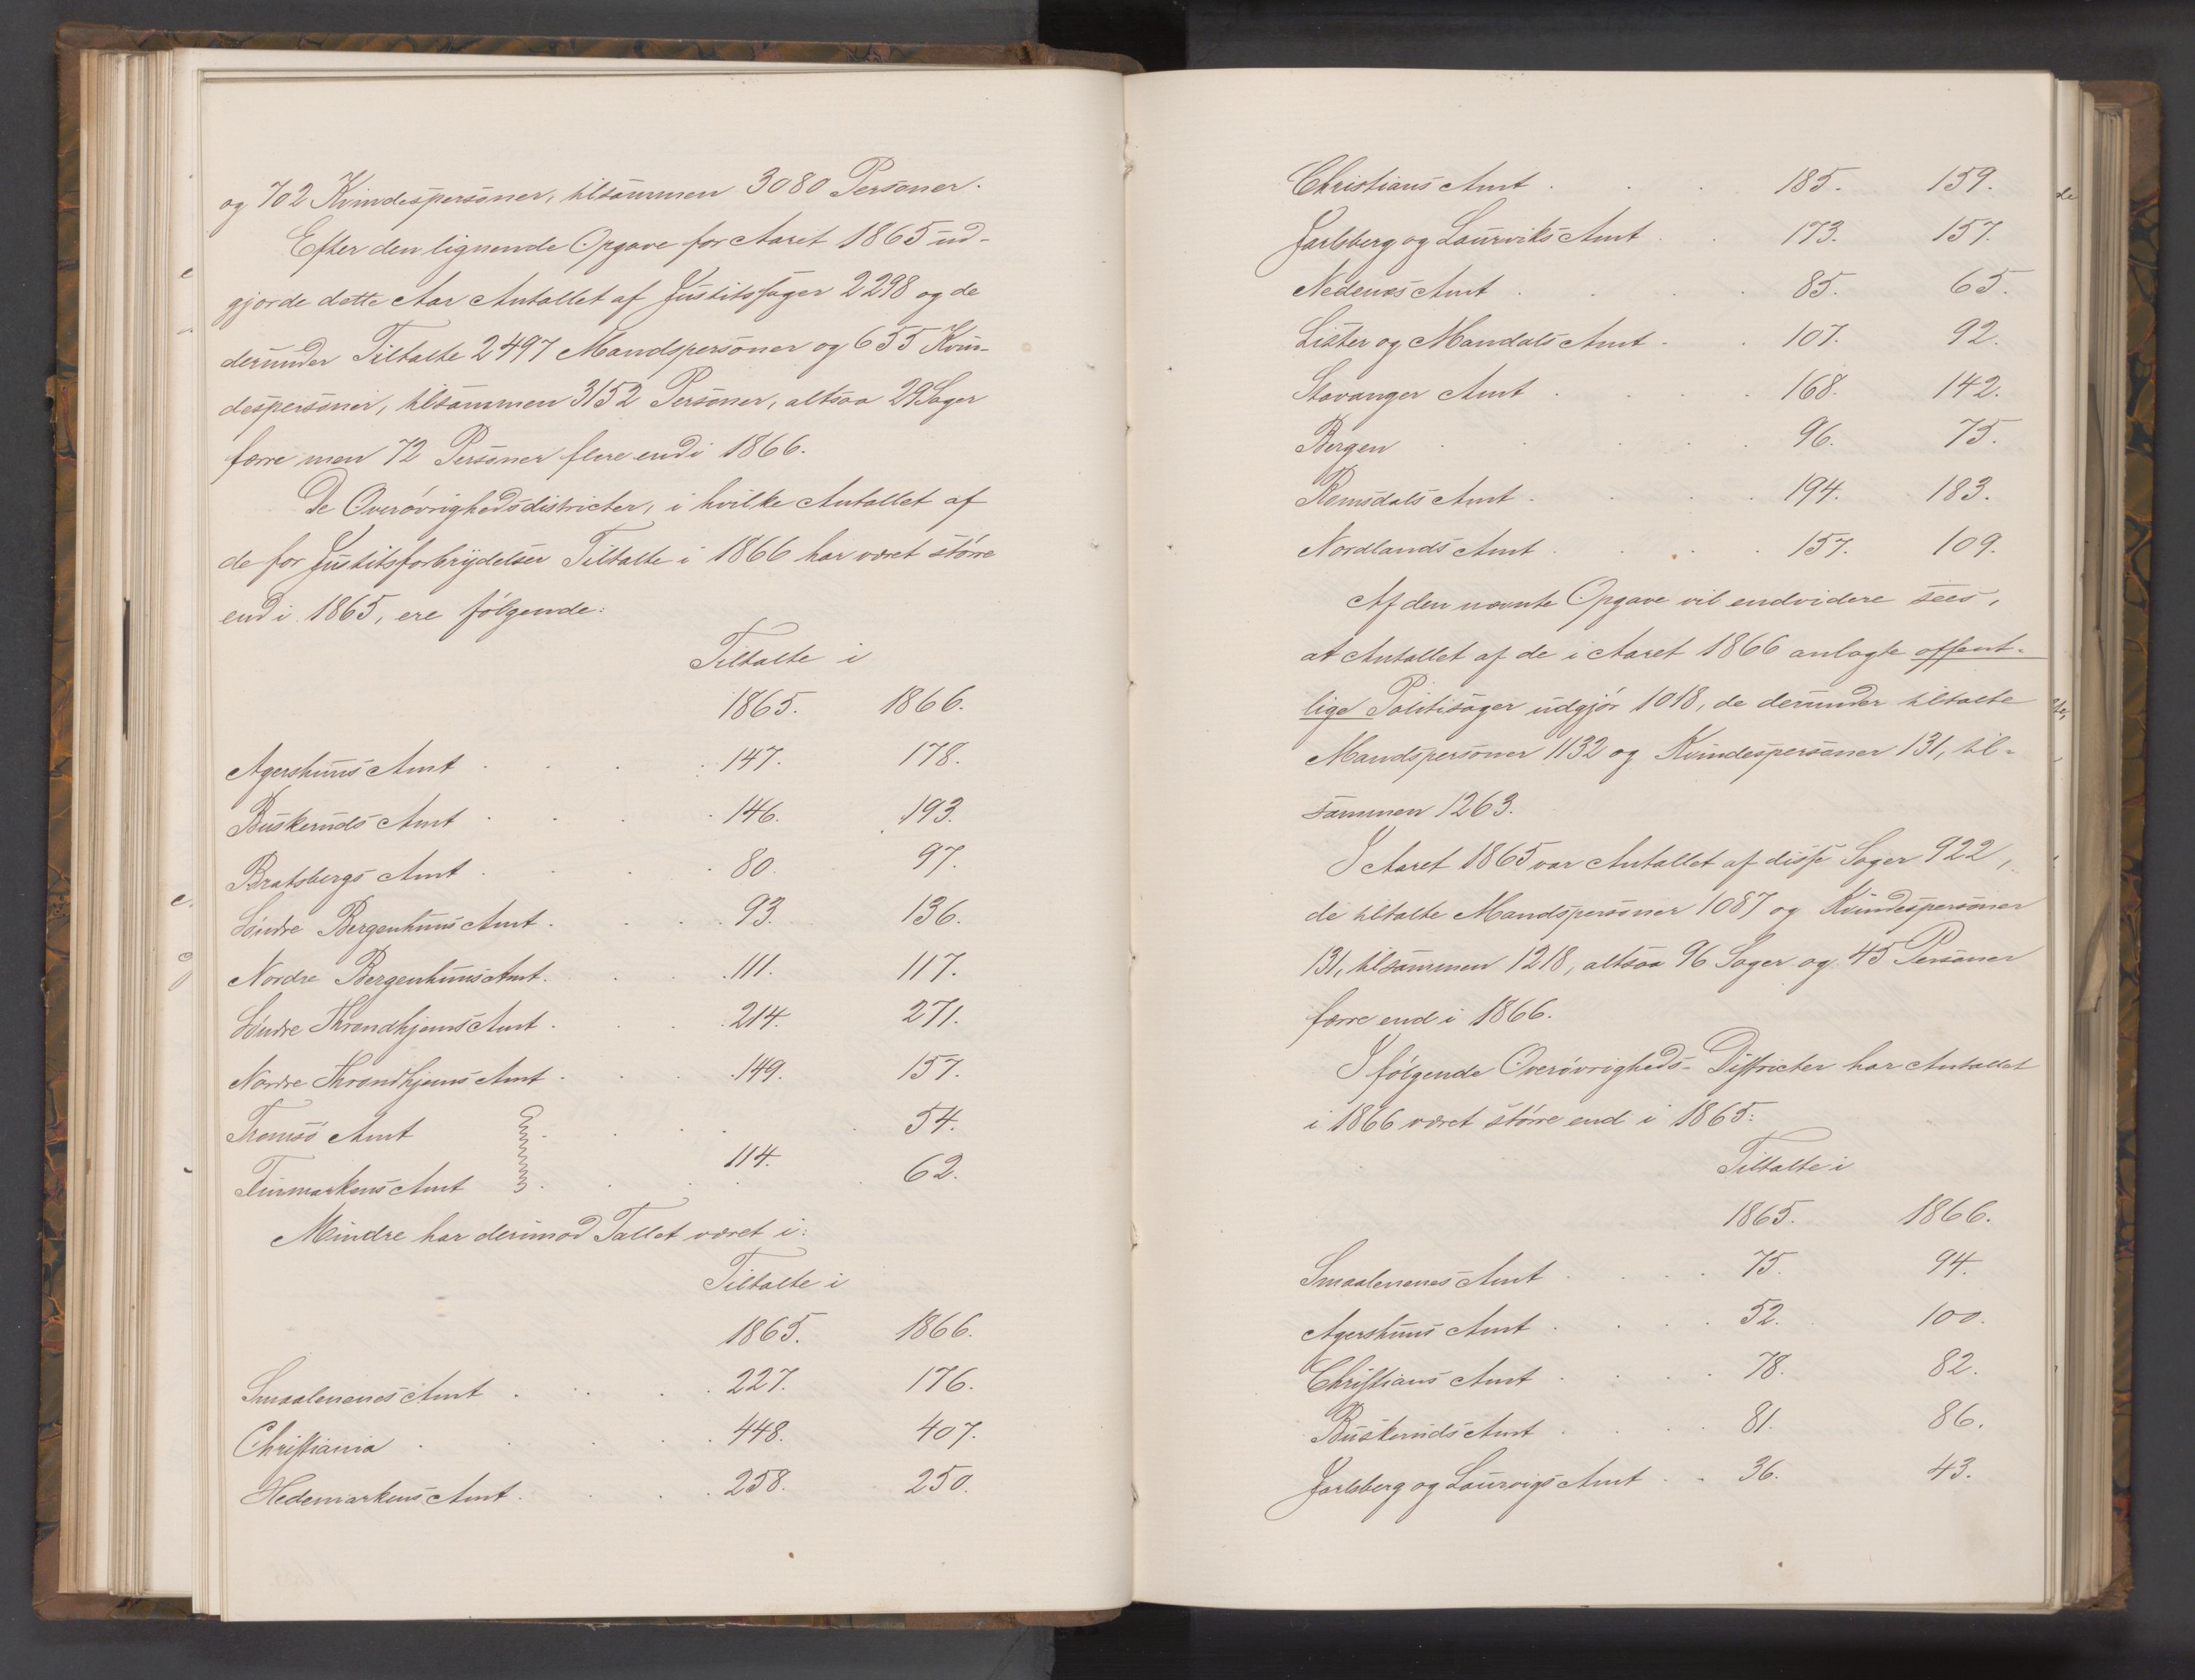 og 702 Kvindespersoner, tilsammen 3080 Personer.
Efter den lignende Opgave for Aaret 1865 ud-
gjorde dette Aar Antallet af Justitssager 2298 og de
derunder Tiltalte 2497 Mandspersoner og 655 Kvin-
despersoner, tilsammen 3152 Personer, altsaa 29 Sager
færre men 72 Personer flere end i 1866.
De Overøvrighedsdistricter, i hvilke Antallet af
de for Justitsforbrydelser Tiltalte i 1866 har været større
end i 1865, ere følgende:
Tiltalte i
1865. 1866.
Agershuus Amt . . . . 147. 178.
Buskeruds Amt . . . . 146. 193.
Bratsbergs Amt . . . . 80. 97.
Søndre Bergenhuus Amt . . . . 93. 136.
Nordre Bergenhuus Amt . . . 111. 117.
Søndre Throndhjems Amt . . . . 214. 271.
Nordre Throndhjems Amt . . . . 149. 157.
Tromsø Amt . . . . . 54.
114.
Finmarkens Amt . . . . . 62.
Mindre har derimod Tallet været i:
Tiltalte i
1865. 1866.
Smaalenenes Amt . . . . 227. 176.
Christiania . . . . 448. 407.
Hedemarkens Amt . . . . 258. 250.
Christians Amt . . . 185. 159.
Jarlsberg og Laurviks Amt . . 173. 157.
Nedenes Amt . . . . 85. 65.
Lister og Mandals Amt . . 107. 92.
Stavanger Amt . . . . 168. 142.
Bergen . . . . . 96. 75.
Romsdals Amt . . . . 194. 183.
Nordlands Amt . . . . 157. 109.
Af den nævnte Opgave vil endvidere sees,
at Antallet af de i Aaret 1866 anlagte offent-
lige Politisager udgjør 1018, de derunder tiltalte
Mandspersoner 1132 og Kvindespersoner 131, til-
sammen 1263.
I Aaret 1865 var Antallet af disse Sager 922,
de tiltalte Mandspersoner 1087 og Kvindespersoner
131, tilsammen 1218, altsaa 96 Sager og 45 Personer
færre end i 1866.
I følgende Overøvrigheds-Districter har Antallet
i 1866 været større end i 1865:
Tiltalte i
1865. 1866.
Smaalenenes Amt . . . . 75. 94.
Agershuus Amt . . . . 52. 100.
Christians Amt . . . . 78. 82.
Buskeruds Amt . . . . 81. 86.
Jarlsberg og Laurvigs Amt . . 36. 43.